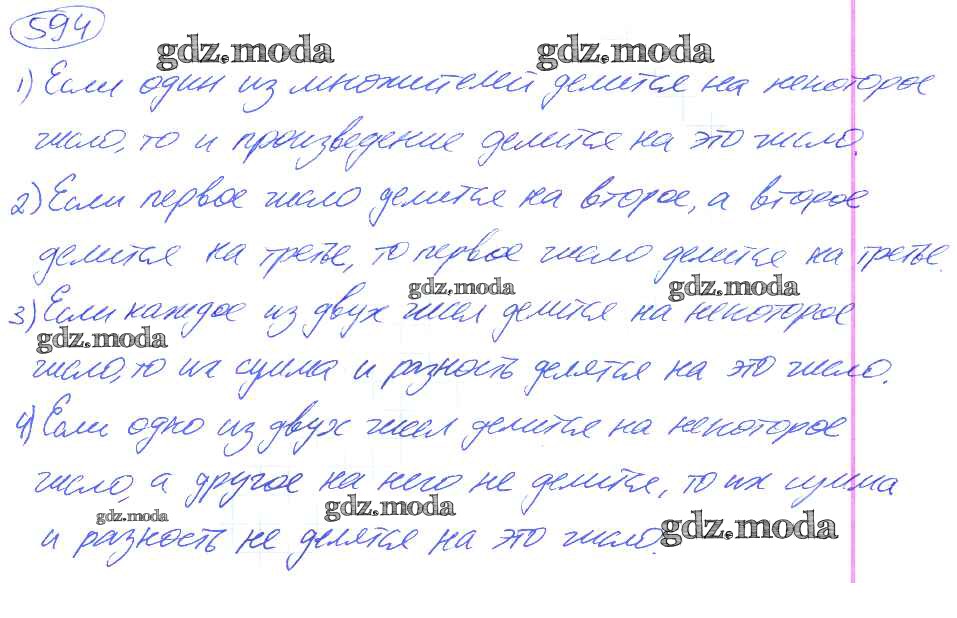 594
gdz.moda gdz.moda
1) Если один из множителей делится на некоторое
число, то и произведение делится на это число.
2) Если первое число делится на второе, а второе
делится на третье, то первое число делится на третье.
gdz.moda gdz.moda
3) Если каждое из двух чисел делится на некоторое
gdz.moda
число, то их сумма и разность делятся на это число.
4) Если одно из двух чисел делится на некоторое
число, а другое на него не делится, то их сумма
gdz.moda gdz.moda gdz.moda
и разность не делятся на это число.